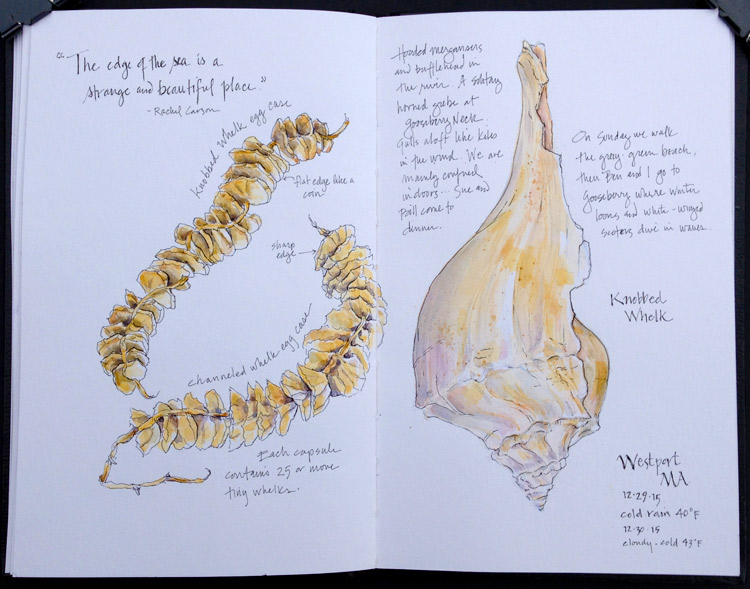 "The edge of the sea is a
strange and beautiful place."
- Rachel Carson
Knobbed whelk egg case
flat edge like a
coin
sharp
edge
channeled whelk egg case
Each capsule
contains 25 or more
tiny whelks.
Hooded mergansers
and bufflehead in
the river. A solitary
horned grebe at
Gooseberry Neck.
Gulls aloft like kites
in the wind. We are
mainly confined
indoors... Sue and
Bill come to
dinner.
On Sunday we walk
the gray-green beach,
then Ben and I go to
Gooseberry where winter
loons and white-winged
scoters dive in waves.
Knobbed
Whelk
Westport
MA
12.29.15
cold rain 40°F
12.30.15
cloudy - cold 43°F